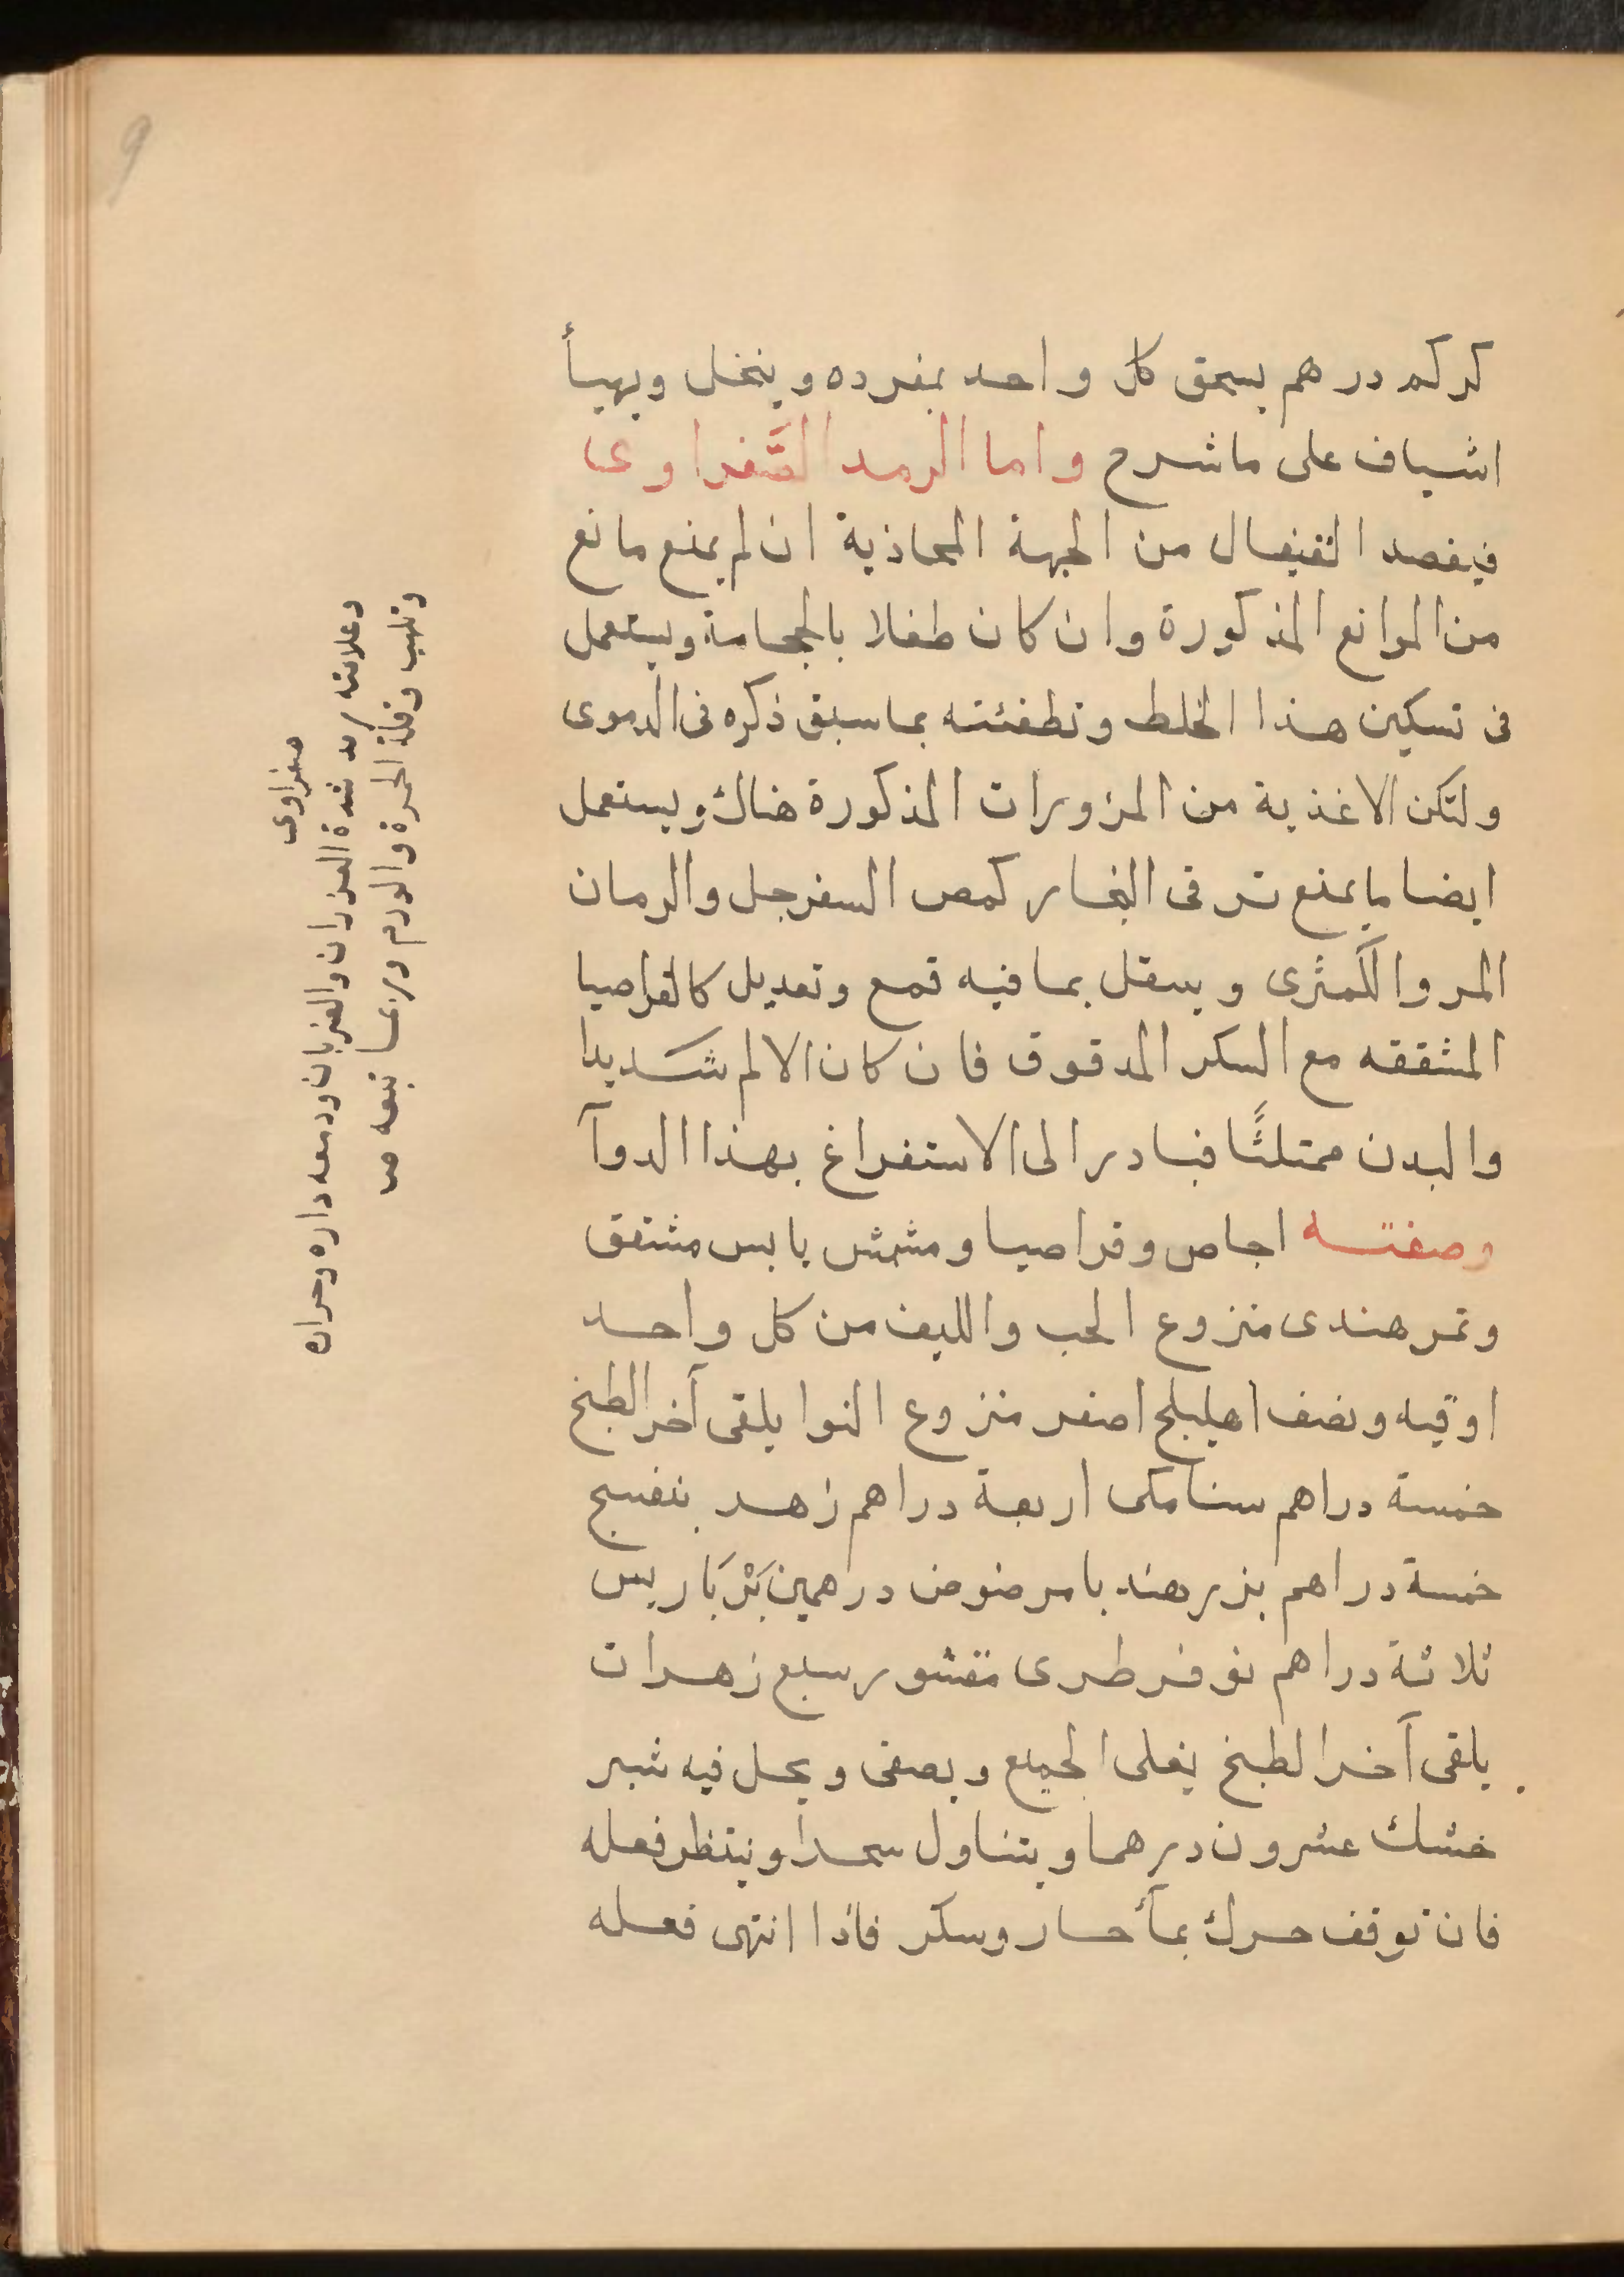 9
كركم درهم يسحق كل واحد بمفرده وينخل ويهيأ
اشياف على ما شرح واما الرمد الصَّفراوى
فيفصد القيفال من الجهة المحاذية ان لم يمنع مانع
من الموانع المذكورة وان كان طفلا بالحجامة ويستعمل
فى تسكين هذا الخلط وتطفئته بما سبق ذكره فى الدموى
ولتكن الاغذية من المزورات المذكورة هناك ويستعمل
ايضا ما يمنع ترقى البخار كمص السفرجل والرمان
المر والكمثرى وينتقل بما فيه قمع وتعديل كالقراصيا
المشققه مع السكر المدقوق فان كان الالم شديدا
والبدن ممتلئًا فبادر الى الاستفراغ بهذا الدوآ
وصفته اجاص وقراصيا ومشمش يابس مشقق
وتمر هندى منزوع الحب والليف من كل واحد
اوقيه ونصف اهليلج اصفر منزوع النوا يلقى آخر الطبخ
خمسة دراهم سنامكى اربعة دراهم زهر بنفسج
خمسة دراهم بزر هندبا مرضوض درهمين بَرْبَاريس
ثلاثة دراهم نوفر طرى مقشور سبع زهرات
يلقى آخر الطبخ يغلى الجميع ويصفى ويحل فيه شير
خشك عشرون درهما ويتناول سحرا وينتظر فعله
فان توقف حرك بمآ حار وسكر فاذا انتهى فعله
صفراوى
وعلامته رمد شدة الغرزان والضربان ودمعه حاره وحراره
وتلهب وقلة الحمرة والورم وربما تبعه